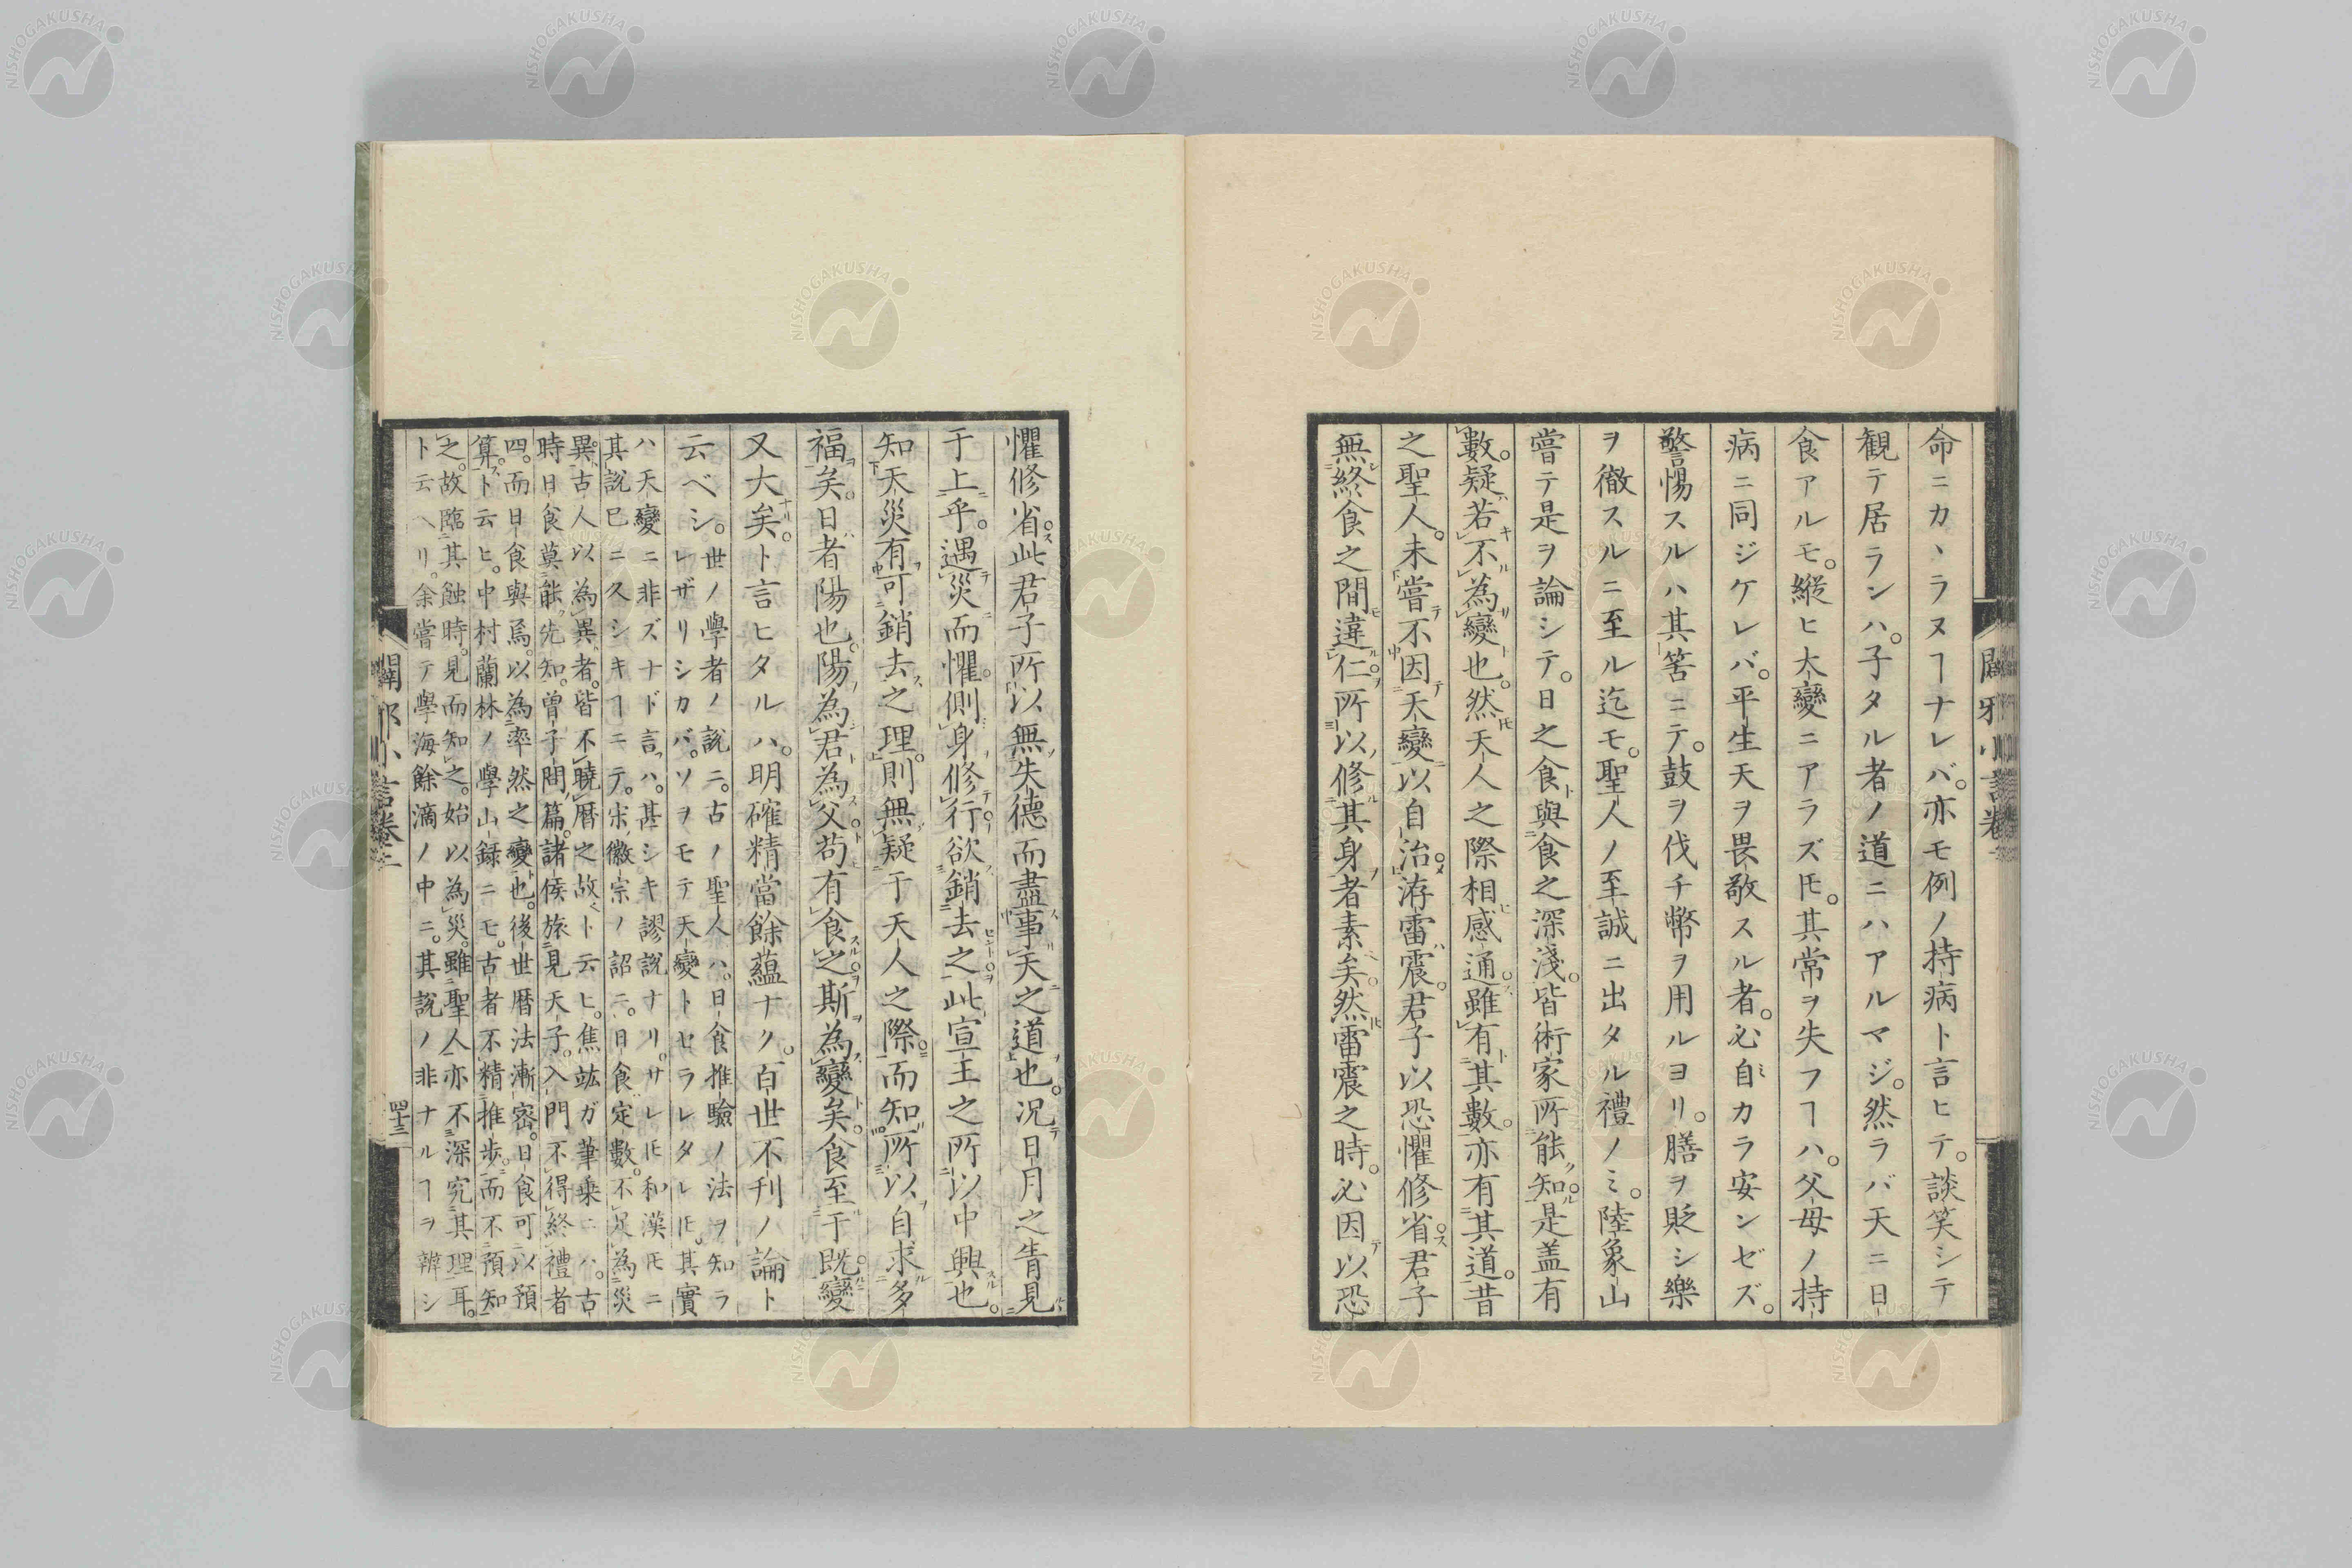 命ニカヽラヌヿナレバ。亦モ例ノ持病ト言ヒテ。談笑シテ
観テ居ランハ。子タル者ノ道ニハアルマジ。然ラバ天ニ日
食アルモ。縱ヒ大變ニアラズ𪜈。其常ヲ失フヿハ。父母ノ持
病ニ同ジケレバ。平生天ヲ畏敬スル者。必自カラ安ンゼズ。
警惕スルハ其筈ニテ。鼓ヲ伐チ幣ヲ用ルヨリ。膳ヲ貶シ樂
ヲ徹スルニ至ル迄モ。聖人ノ至誠ニ出タル禮ノミ。陸象山
嘗テ是ヲ論シテ。日之食與食之深淺。皆術家所能知。是盖有
數。疑若不為變也。然天人之際相感通。雖有其數。亦有其道。昔
之聖人。未嘗不因天變以自治。洊雷震。君子以恐懼修省。君子
無終食之間違仁。所以修其身者素矣。然雷震之時。必因以恐
懼修省。此君子所以無失德而盡事天之道也。况日月之眚見
于上乎。遇災而懼。側身修行。欲銷去之。此宣王之所以中興也。
知天災有可銷去之理。則無疑于天人之際。而知所以自求多
福矣。日者陽也。陽為君為父。苟有食之。斯為變矣。食至于既。變
又大矣。ト言ヒタルハ。明確精當餘蘊ナク。百世不刊ノ論ト
云ベシ。
世ノ學者ノ説ニ。古ノ聖人ハ。日食推驗ノ法ヲ知ラ
レザリシカバ。ソヲモテ天變トセラレタレ𪜈。其實
ハ天變ニ非ズナド言ハ。甚シキ謬説ナリ。サレ𪜈和漢𪜈ニ
其説已ニ久シキヿニテ。宋徽宗ノ詔ニ。日食定數。不足為災
異。古人以為異者。皆不曉曆之故ト云ヒ。焦竑ガ筆乗ニハ。古
時日食莫能先知。曽子問篇。諸侯旅見天子。入門不得終禮者
四。而日食與焉。以為率然之變也。後世暦法漸密。日食可以預
算。ト云ヒ。中村蘭林ノ學山録ニモ。古者不精推步。而不預知
之。故臨其蝕時。見而知之。始以為災。雖聖人亦不深究其理耳。
ト云ヘリ。余嘗テ學海餘滴ノ中ニ。其説ノ非ナルヿヲ辨シ
闢邪小言卷二
四十三
NISHOGAKUSHA